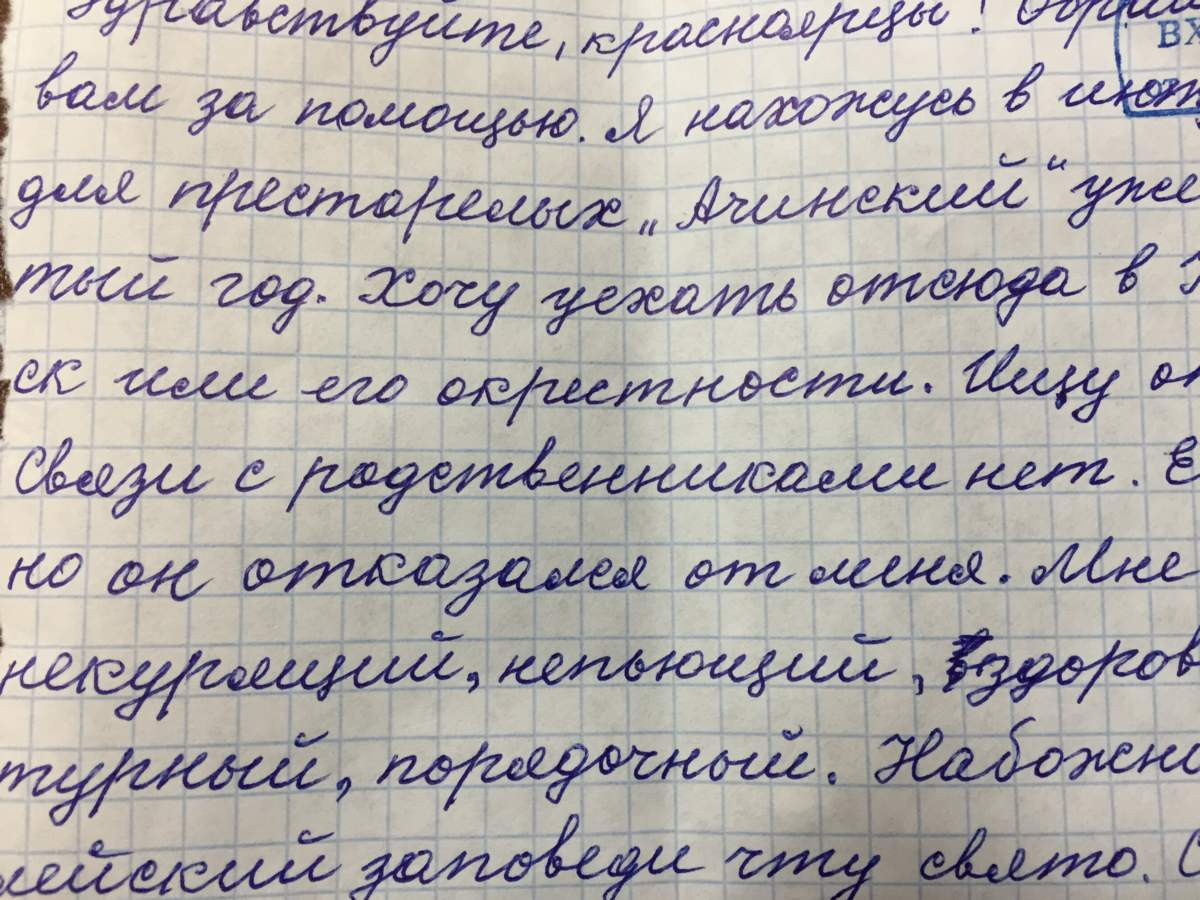 Здравствуйте, красноярцы! Обращ
ВХ
вам за помощью. Я нахожусь в инт
для престарелых „Ачинский“ уже
тый год. Хочу уехать отсюда в
ск или его окрестности. Ищу оп
Связи с родственниками нет. Е
но он отказался от меня. Мне
некурящий, непьющий, здоров
турный, порядочный. Набожн
лейский заповеди чту свято. С